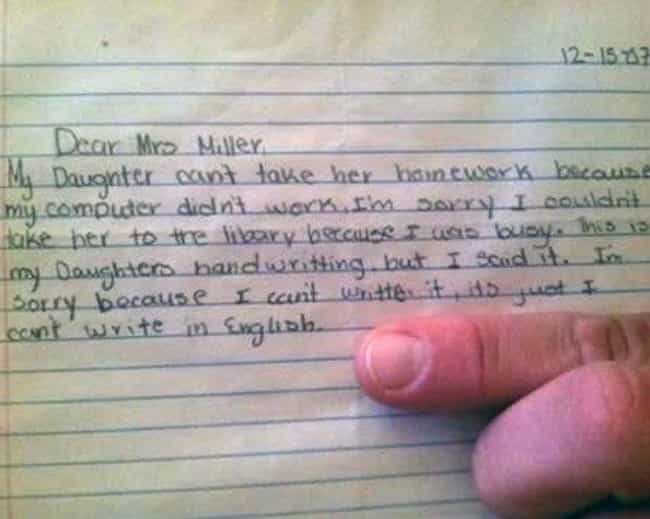 12-15-07
Dear Mrs Miller,
My Daughter can't take her homework because
my computer didn't work. I'm sorry I couldn't
take her to the libary because I was busy. This is
my Daughters handwritting, but I said it. I'm
sorry because I can't writte it, its just I
can't write in English.